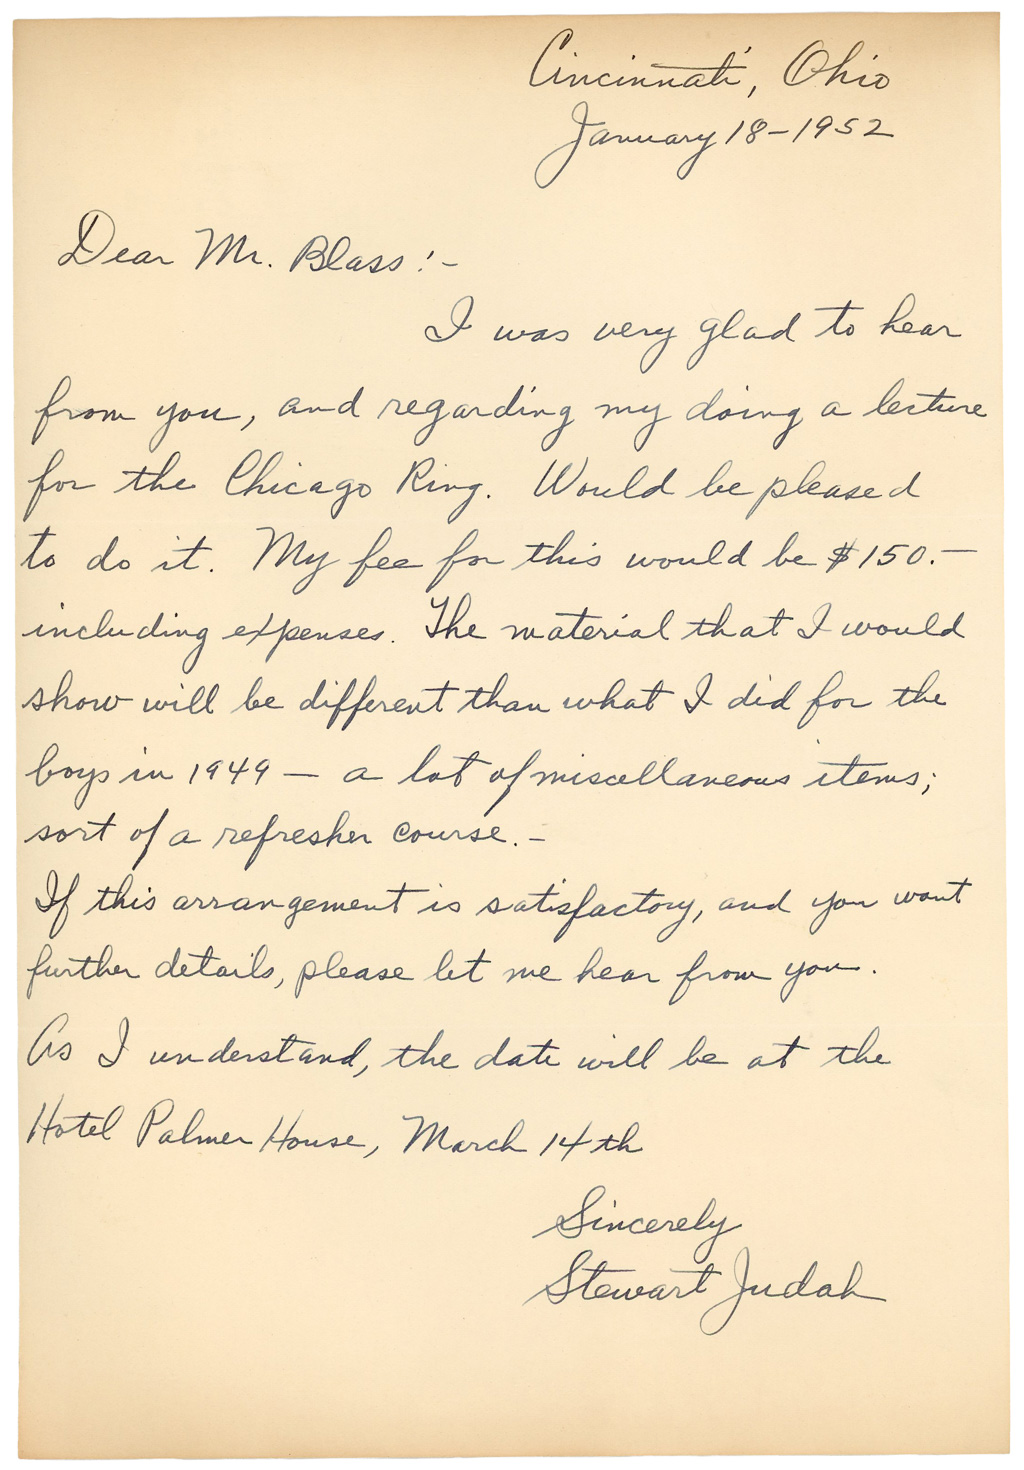 Cincinnati, Ohio
January 18-1952
Dear Mr. Blass:-
I was very glad to hear
from you, and regarding my doing a lecture
for the Chicago Ring. Would be pleased
to do it. My fee for this would be $150.—
including expenses. The material that I would
show will be different than what I did for the
boys in 1949 — a lot of miscellaneous items;
sort of a refresher course.-
If this arrangement is satisfactory, and you want
further details, please let me hear from you.
As I understand, the date will be at the
Hotel Palmer House, March 14th
Sincerely
Stewart Judah